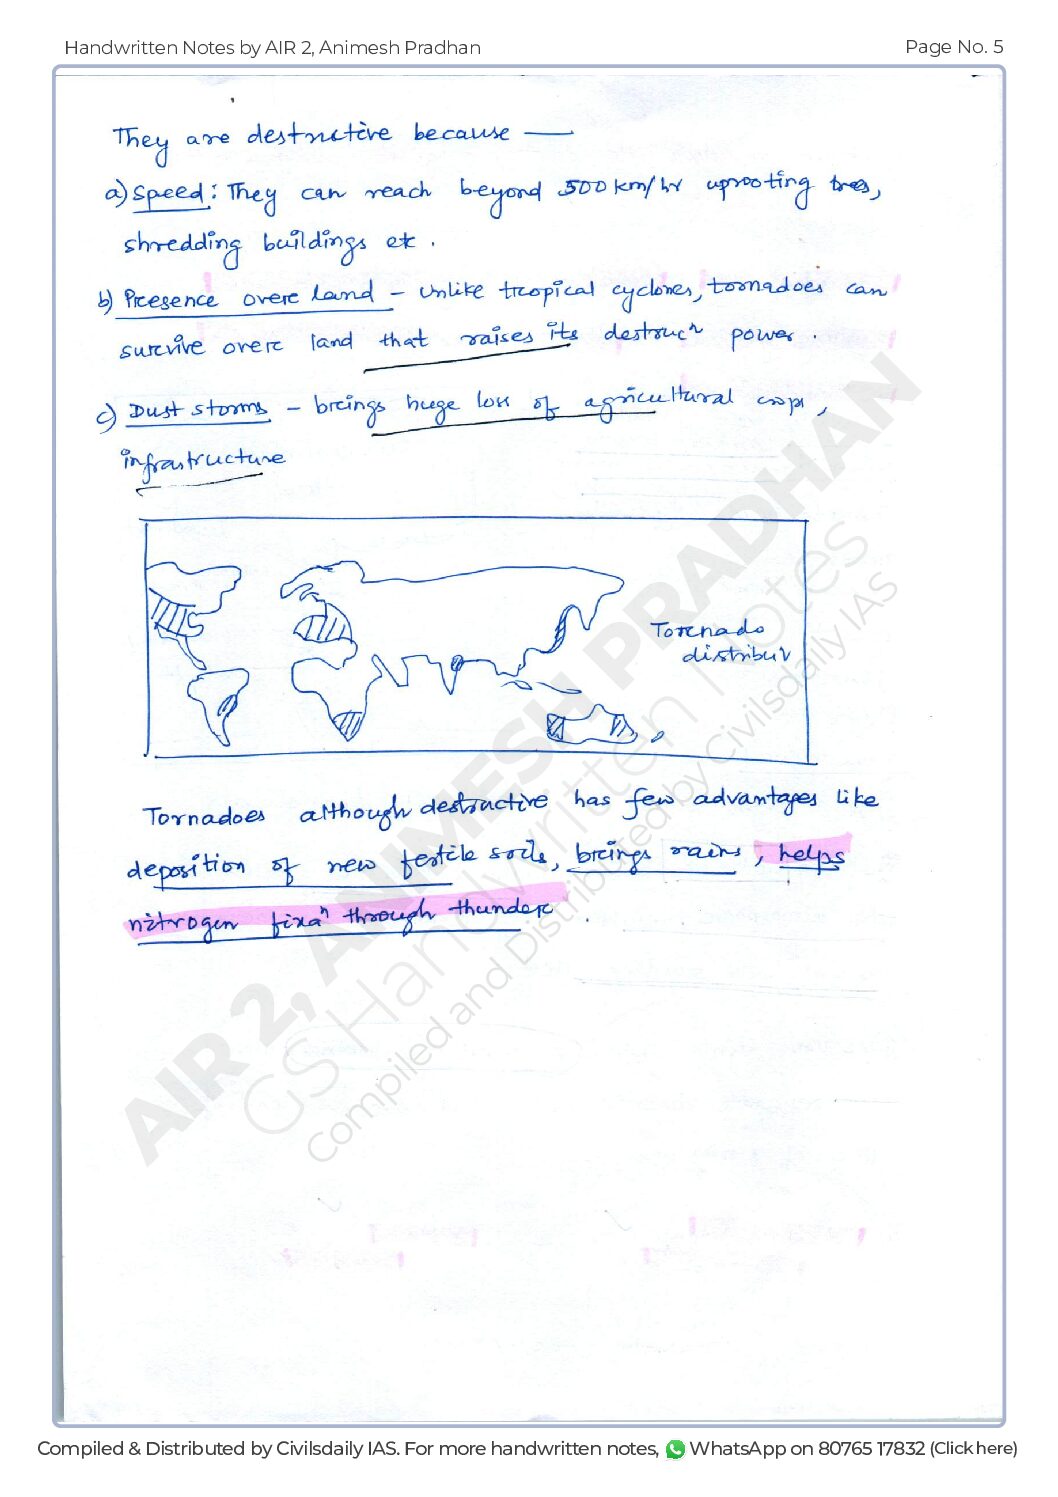 Handwritten Notes by AIR 2, Animesh Pradhan
Page No. 5
They are destructive because —
a) Speed : They can reach beyond 500 km/hr uprooting trees,
shredding buildings etc .
b) Presence over land - Unlike tropical cyclones, tornadoes can
survive over land that raises its destrucⁿ power .
c) Dust storms - brings huge loss of agricultural crops ,
infrastructure
Tornado
distribuⁿ
Tornadoes although destructive has few advantages like
deposition of new fertile soils, brings rains , helps
nitrogen fixaⁿ through thunder .
AIR 2, ANIMESH PRADHAN
GS Handwritten Notes
Compiled and Distributed by Civilsdaily IAS
Compiled & Distributed by Civilsdaily IAS. For more handwritten notes, WhatsApp on 80765 17832 (Click here)